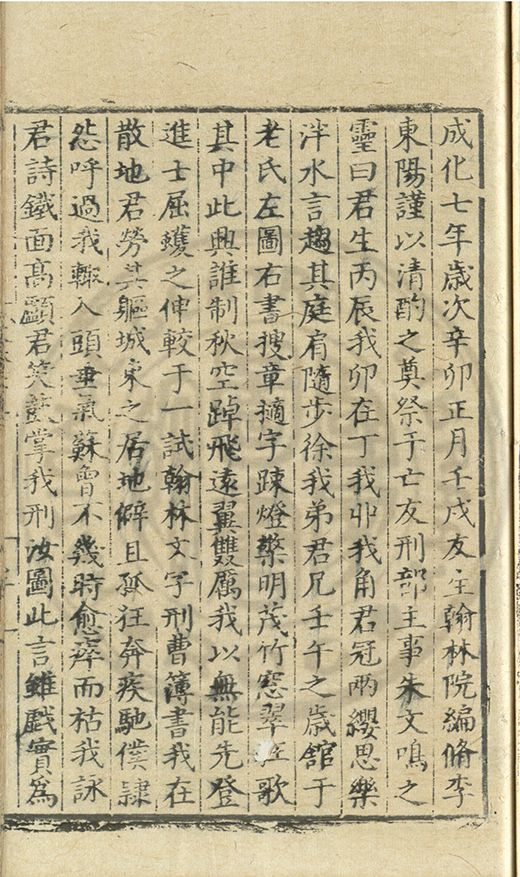 成化七年歲次辛卯正月壬戌友生翰林院編脩李
東陽謹以清酌之奠祭于亡友刑部主事朱文鳴之
靈曰君生丙辰我卯在丁我丱我角君冠兩纓思樂
泮水言趨其庭肩隨步徐我弟君兄壬午之歲館于
老氏左圖右書搜章摘字踈燈檠明茂竹窓翠在歌
其中此興誰制秋空踔飛遠翼雙厲我以無能先登
進士屈蠖之伸較于一試翰林文字刑曹簿書我在
散地君勞其軀城東之居地僻且孤狂奔疾馳僕隷
怨呼過我輙入頭垂氣蘇曾不幾時愈瘁而枯我詠
君詩鐵面高顴君笑鼓掌我刑汝圖此言雖戲實爲